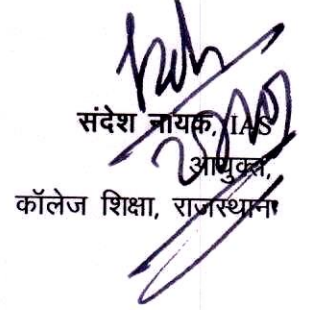 संदेश नायक, IAS
आयुक्त,
कॉलेज शिक्षा, राजस्थान